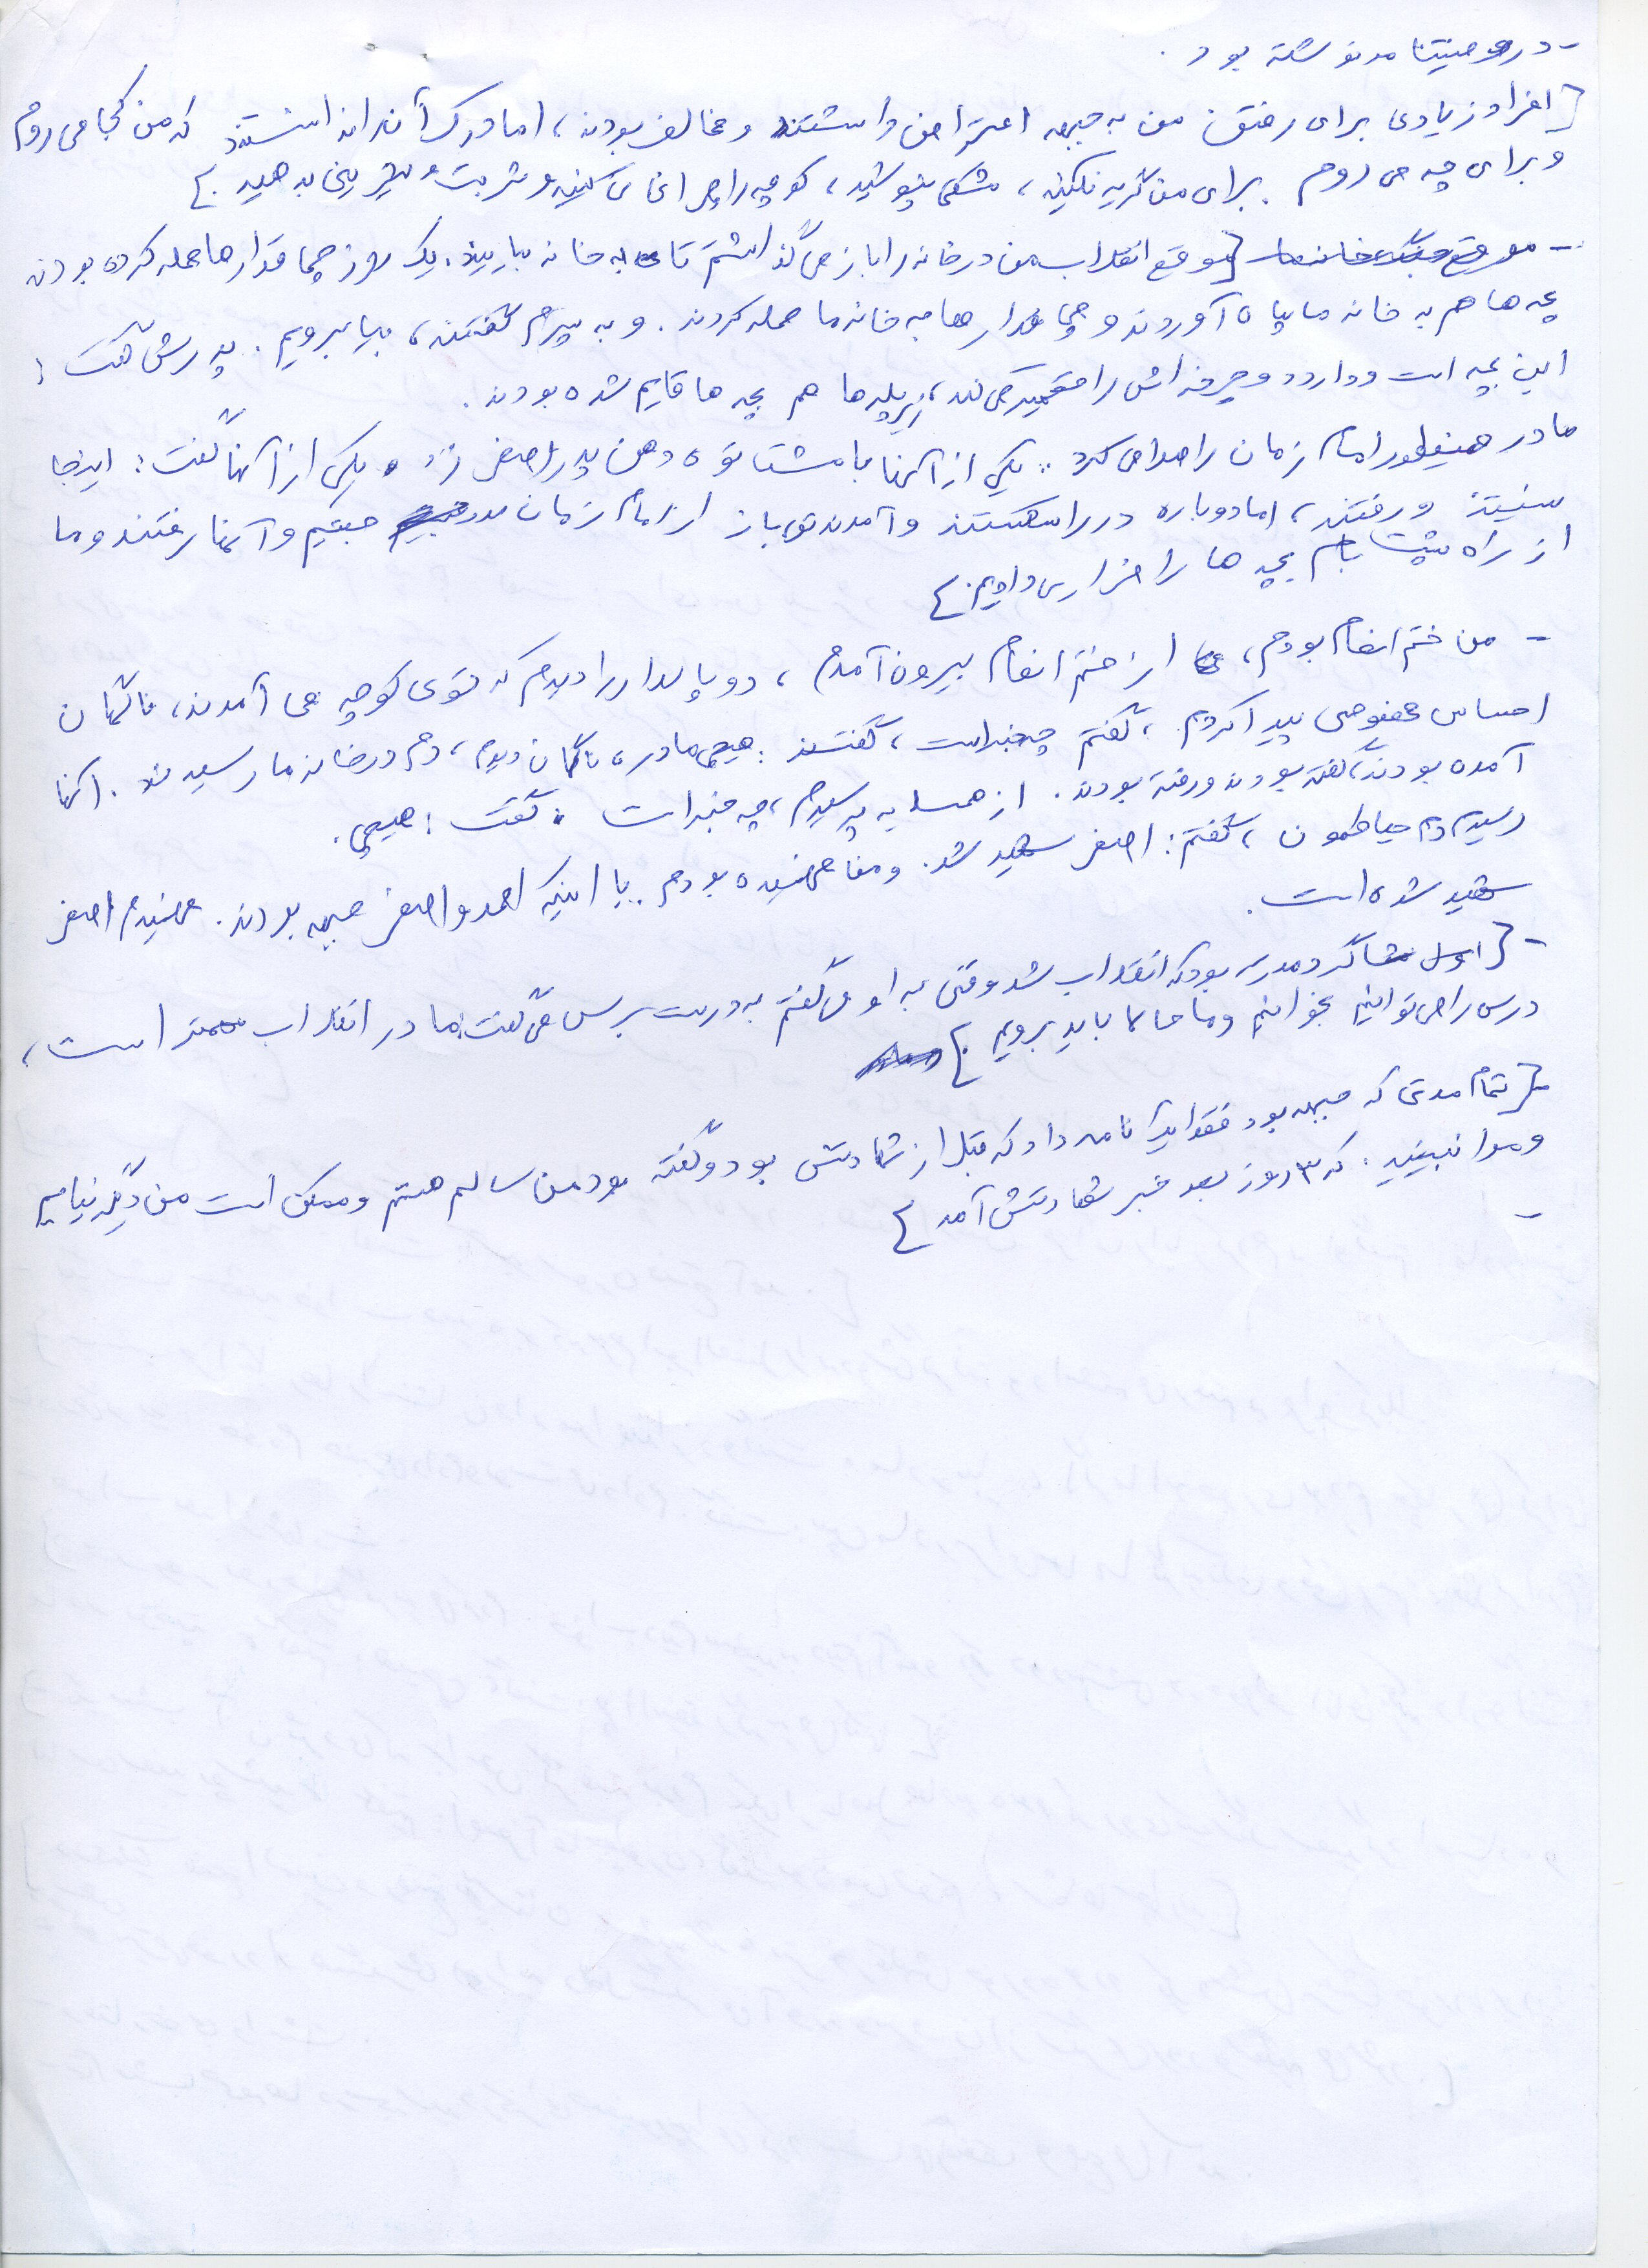 - در وصیتنامه نوشته بود.
[افراد زیادی برای رفتن من به جبهه اعتراض داشتند و مخالف بودند، اما درک آن را نداشتند که من کجا می روم
و برای چه می روم. برای من گریه نکنید، مشکی نپوشید، کوچه را چراغانی کنید و شربت و شیرینی بدهید.]
- موقع جنگ خانه ما [موقع انقلاب من در خانه را باز می گذاشتم تا به خانه بیایند. یک روز چماقدارها حمله کرده بودند
بچه ها هم به خانه ما پناه آوردند و چماقدارها به خانه ما حمله کردند. و به پسرم گفتند، بیا برویم. پدرش گفت:
این بچه است و دارد دوچرخه اش را تعمیر می کند، زیر پله ها هم بچه ها قایم شده بودند.
مادر همینطور امام زمان را صدا می کرد. یکی از آنها با مشت توی دهن پدر اصغر زد. یکی از آنها گفت: اینجا
نیستند و رفتند، اما دوباره در را شکستند و آمدند تو باز از امام زمان مدد جستیم و آنها رفتند و ما
از راه پشت بام بچه ها را فراری دادیم.]
- من ختم انعام بودم، از ختم انعام بیرون آمدم، دو پاسدار را دیدم که توی کوچه می آمدند، ناگهان
احساس مخصوصی پیدا کردم، گفتم چه خبر است، گفتند: هیچی مادر، ناگهان دیدم، دم در خانه ما رسیدند. آنها
آمده بودند، گفته بودند و رفته بودند. از همسایه پرسیدم، چه خبر است، گفت: هیچی.
رسیدم دم حیاطمون، گفتم: اصغر شهید شد. و منو فهمیده بودم. با اینکه احمد و اصغر جبهه بودند. فهمیدم اصغر
شهید شده است.
- [اول شاگرد مدرسه بود که انقلاب شد وقتی به او می گفتم به درست برس می گفت: مادر انقلاب مهمتر است،
درس را می توانیم بخوانیم و ما حالا باید برویم.]
[تمام مدتی که جبهه بود فقط یک نامه داد که قبل از شهادتش بود و گفته بود من سالم هستم و ممکن است من دیگر نیایم
و مرا نبینید. که ۳ روز بعد خبر شهادتش آمد]
-